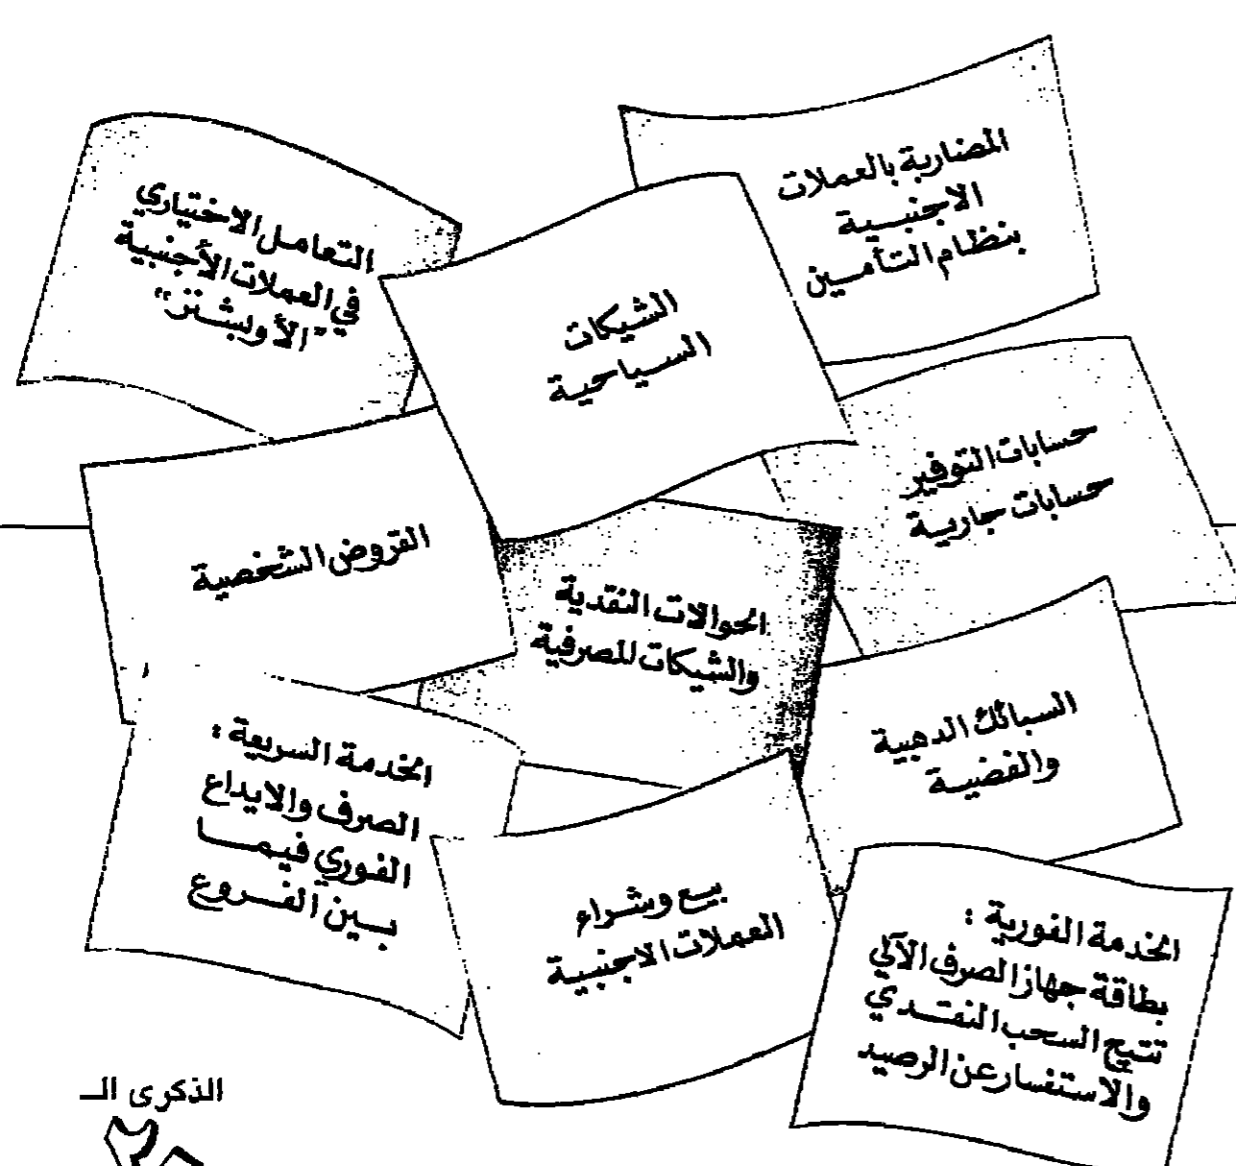 المضاربة بالعملات
الاجنبية
بنظام التأمين
التعامل الاختياري
في العملات الأجنبية
"الأوبشنز"
الشيكات
السياحية
حسابات التوفير
حسابات جارية
القروض الشخصية
الحوالات النقدية
والشيكات المصرفية
السبائك الذهبية
والفضية
الخدمة السريعة :
الصرف والايداع
الفوري فيما
بين الفروع
بيع وشراء
العملات الاجنبية
الخدمة الفورية :
بطاقة جهاز الصرف الآلي
تتيح السحب النقدي
والاستفسار عن الرصيد
الذكرى الـ